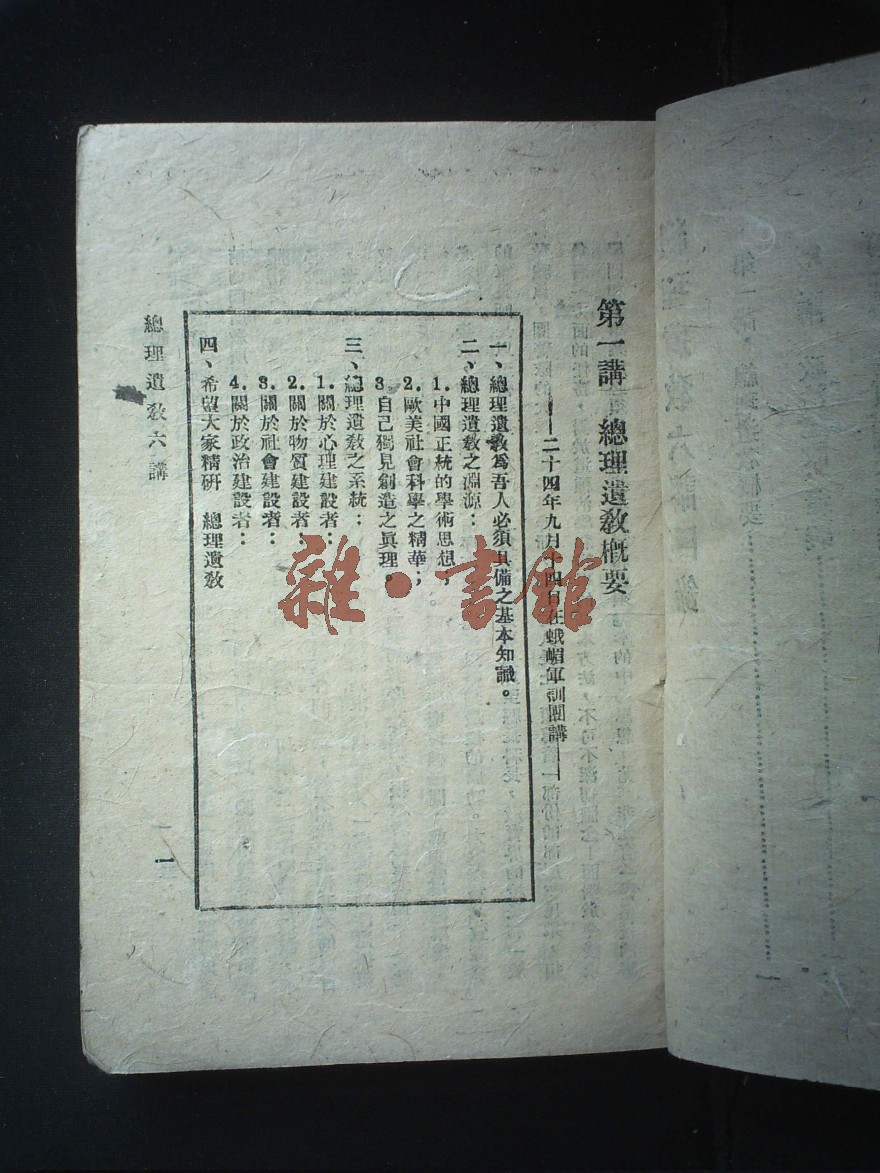 第一講 總理遺教概要
——二十四年九月十四日在峨嵋軍訓團講——
一、總理遺教爲吾人必須具備之基本知識。
二、總理遺教之淵源：
1.中國正統的學術思想
2.歐美社會科學之精華；
3.自己獨見創造之眞理。
三、總理遺教之系統；
1.關於心理建設者：
2.關於物質建設者：
3.關於社會建設者：
4.關於政治建設者：
四、希望大家精研 總理遺教
總理遺教六講
一
雜·書館